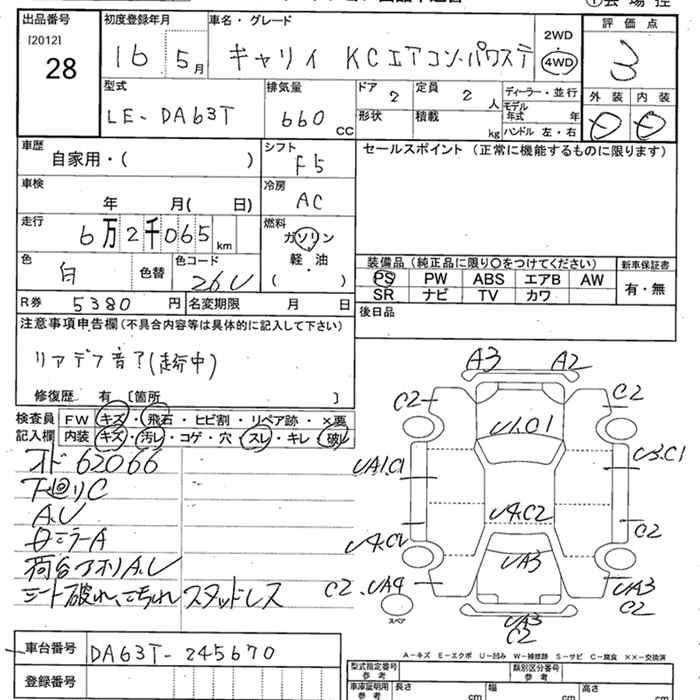 出品番号
[2012]
28
初度登録年月
16 5月
車名・グレード
キャリイ KCエアコン・パワステ
2WD
4WD
評価点
3
型式
LE-DA63T
排気量
660 CC
ドア
2
定員
2 人
形状
積載
kg
ディーラー・並行
モデル年式 年
ハンドル 左・右
外装
内装
車歴
自家用・( )
シフト
F5
セールスポイント (正常に機能するものに限ります)
車検
年 月( 日)
冷房
AC
走行
6万2千065km
燃料
ガソリン
軽・油
( )
色
白
色替
色コード
26U
装備品 (純正品に限り○をつけてください)
新車保証書
PS PW ABS エアB AW
SR ナビ TV カワ
有・無
R券 5380円
名変期限 月 日
後日品
注意事項申告欄(不具合内容等は具体的に記入して下さい)
リアデフ音?(走行中)
修復歴 有 [箇所 ]
検査員
記入欄
FW キズ・飛石・ヒビ割・リペア跡・×要
内装 キズ・汚レ・コゲ・穴・スレ・キレ・破レ
オド62066
下回りC
A.U
ロミラーA
荷台アオリA.U
シート破れ、こちれ スタッドレス
A3 A2
C2 C2
U1.C1
UA1.C1 U3.C1
UA.C2
C2
UA3
C2.UA4 UA3
C2
UA3
C2
スペア
A-キズ E-エクボ U-凹み W-補修跡 S-サビ C-腐食 ××-交換済
車台番号
DA63T-245670
登録番号
型式指定番号
参考
類別区分番号
参考
車庫証明用
参考
長さ cm
幅 cm
高さ cm